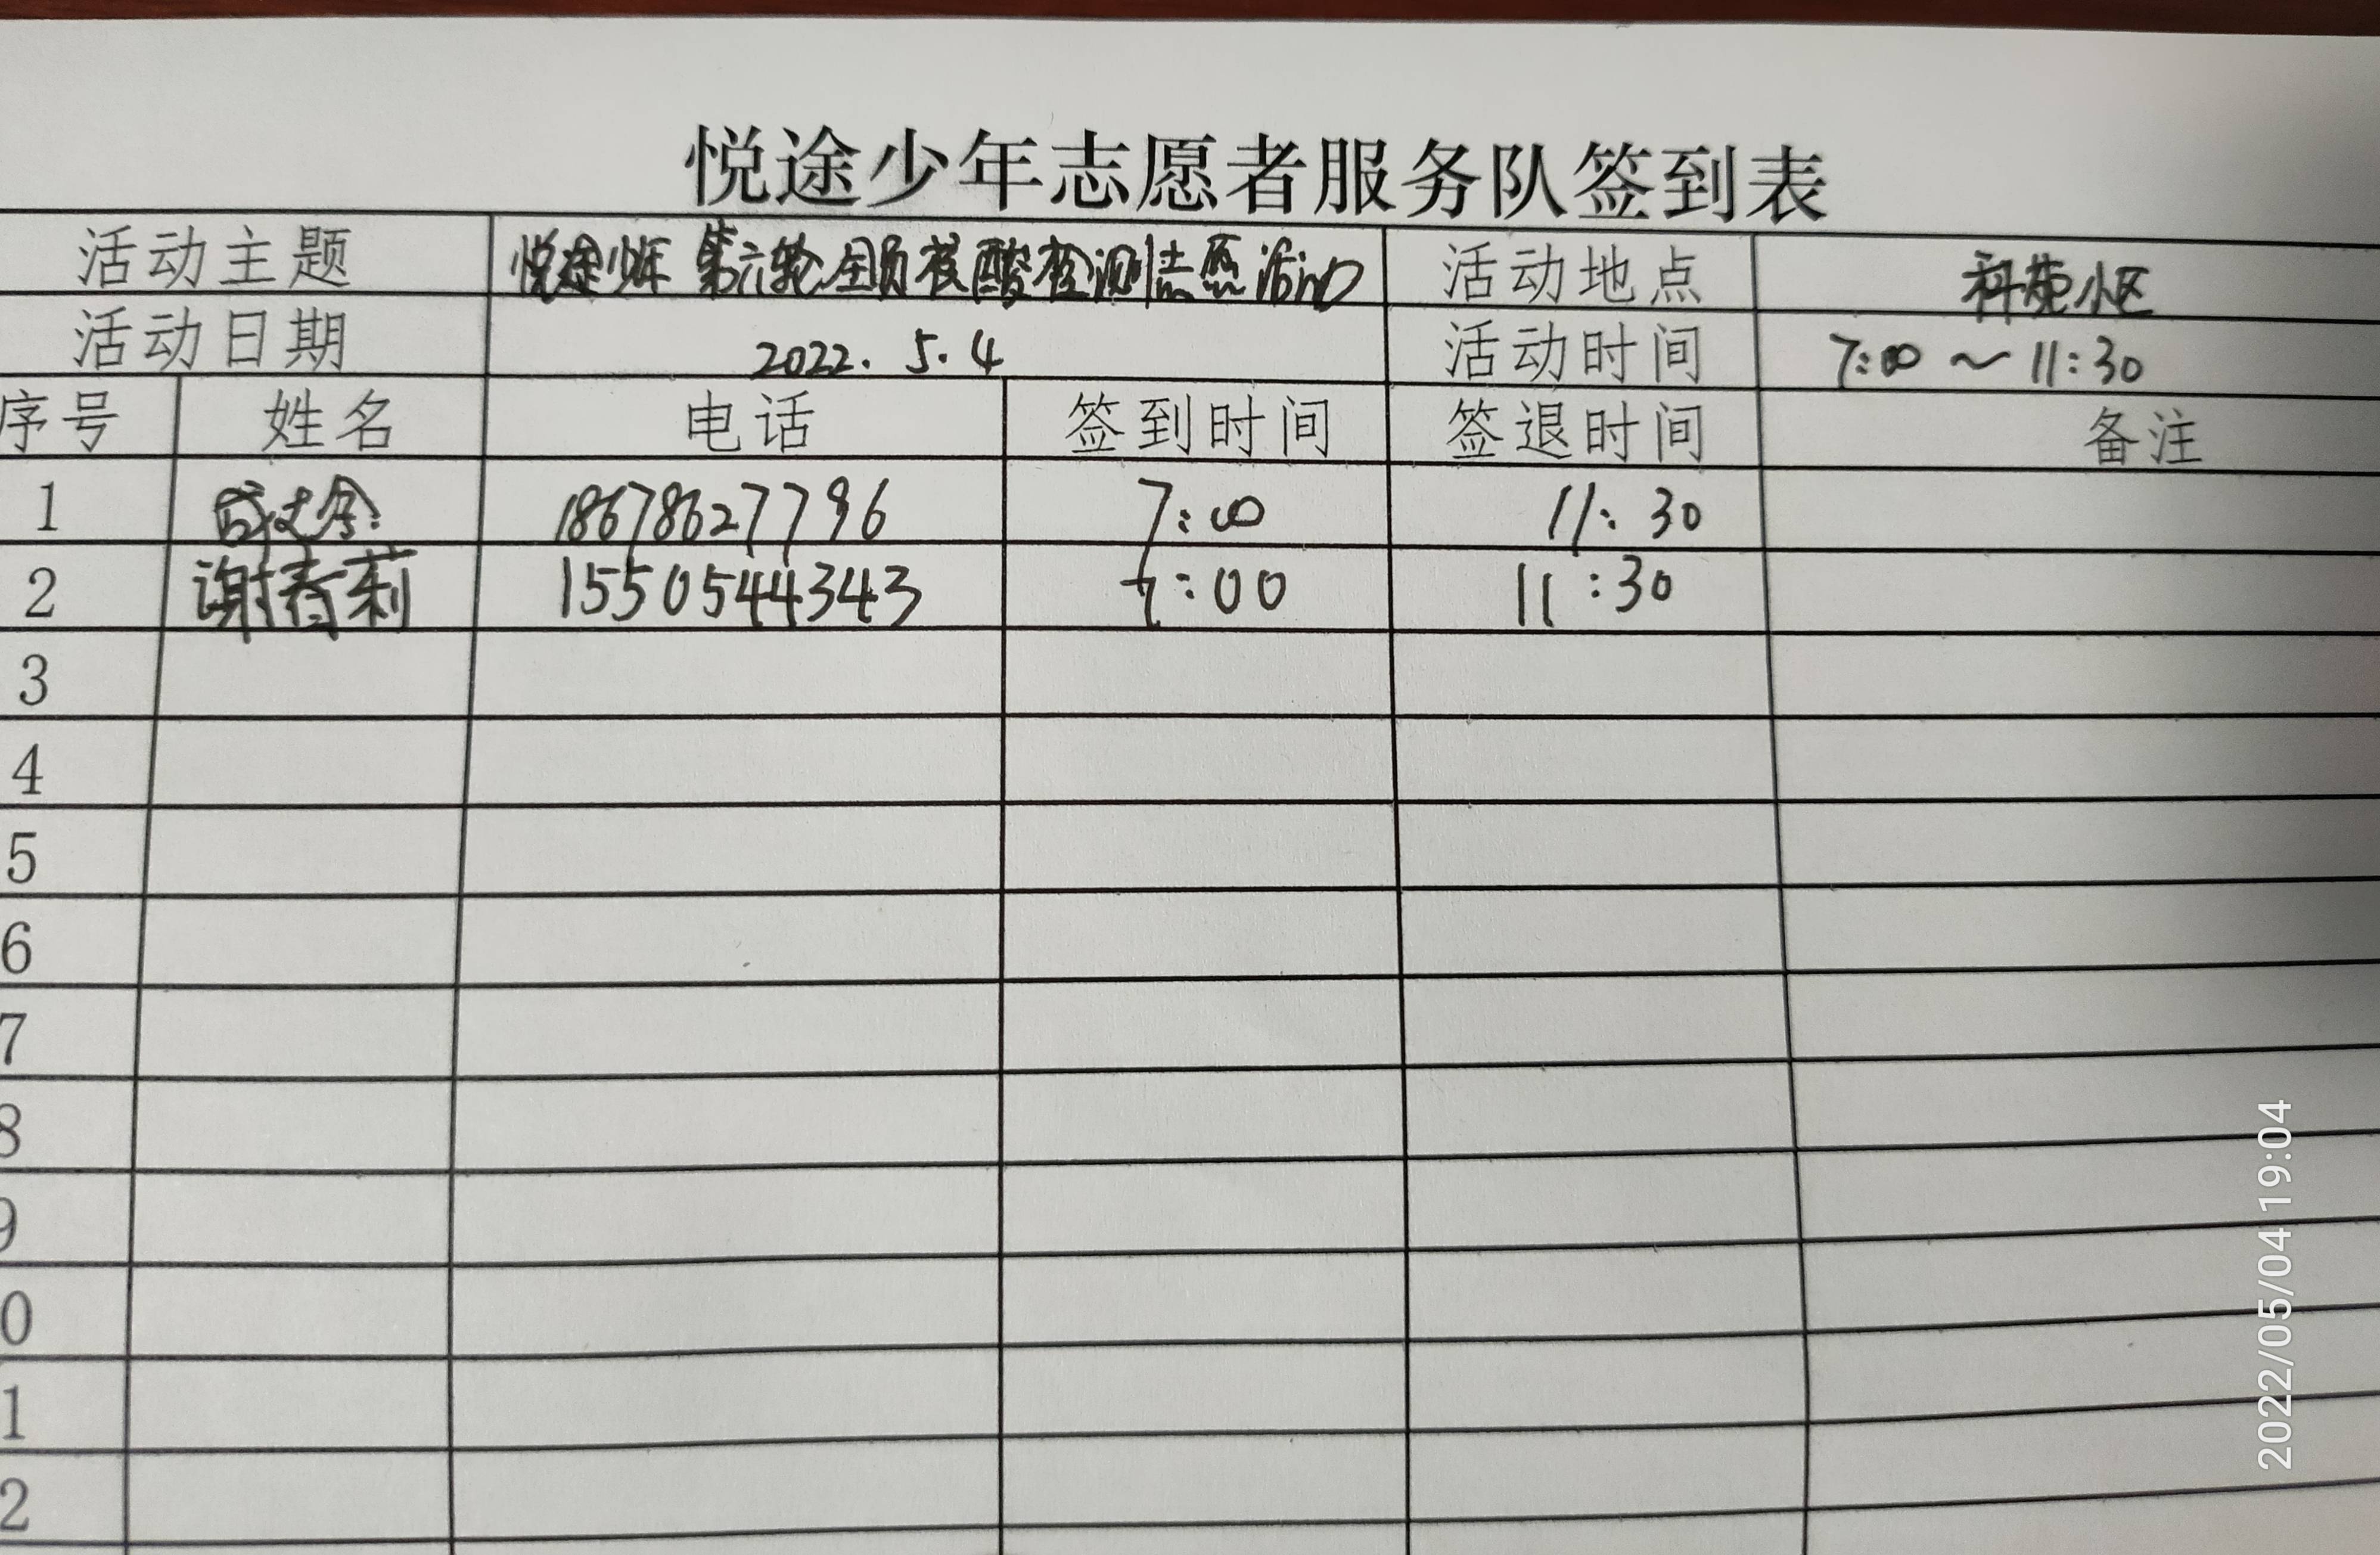 悦途少年志愿者服务队签到表
活动主题 悦途少年 第六轮全员核酸检测志愿活动 活动地点 科苑小区
活动日期 2022.5.4 活动时间 7:00～11:30
序号 姓名 电话 签到时间 签退时间 备注
1 18678627796 7:00 11:30
2 谢春莉 15505444343 7:00 11:30
3
4
5
6
7
8
9
0
1
2
2022/05/04 19:04